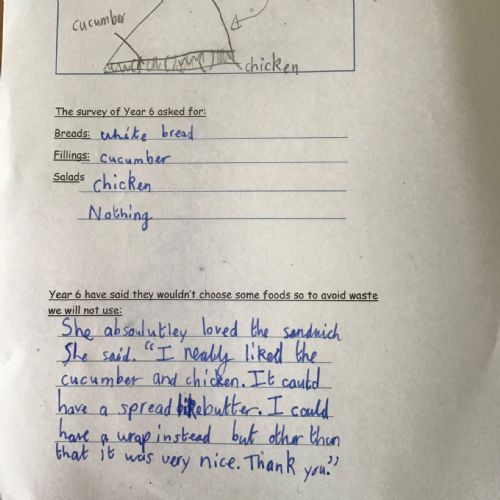 cucumber
chicken
The survey of Year 6 asked for:
Breads: white bread
Fillings: cucumber
Salads chicken
Nothing
Year 6 have said they wouldn't choose some foods so to avoid waste
we will not use:
She absoulutley loved the sandnich
She said. "I really liked the
cucumber and chicken. It could
have a spread like butter. I could
have a wrap instead but other than
that it was very nice. Thank you."